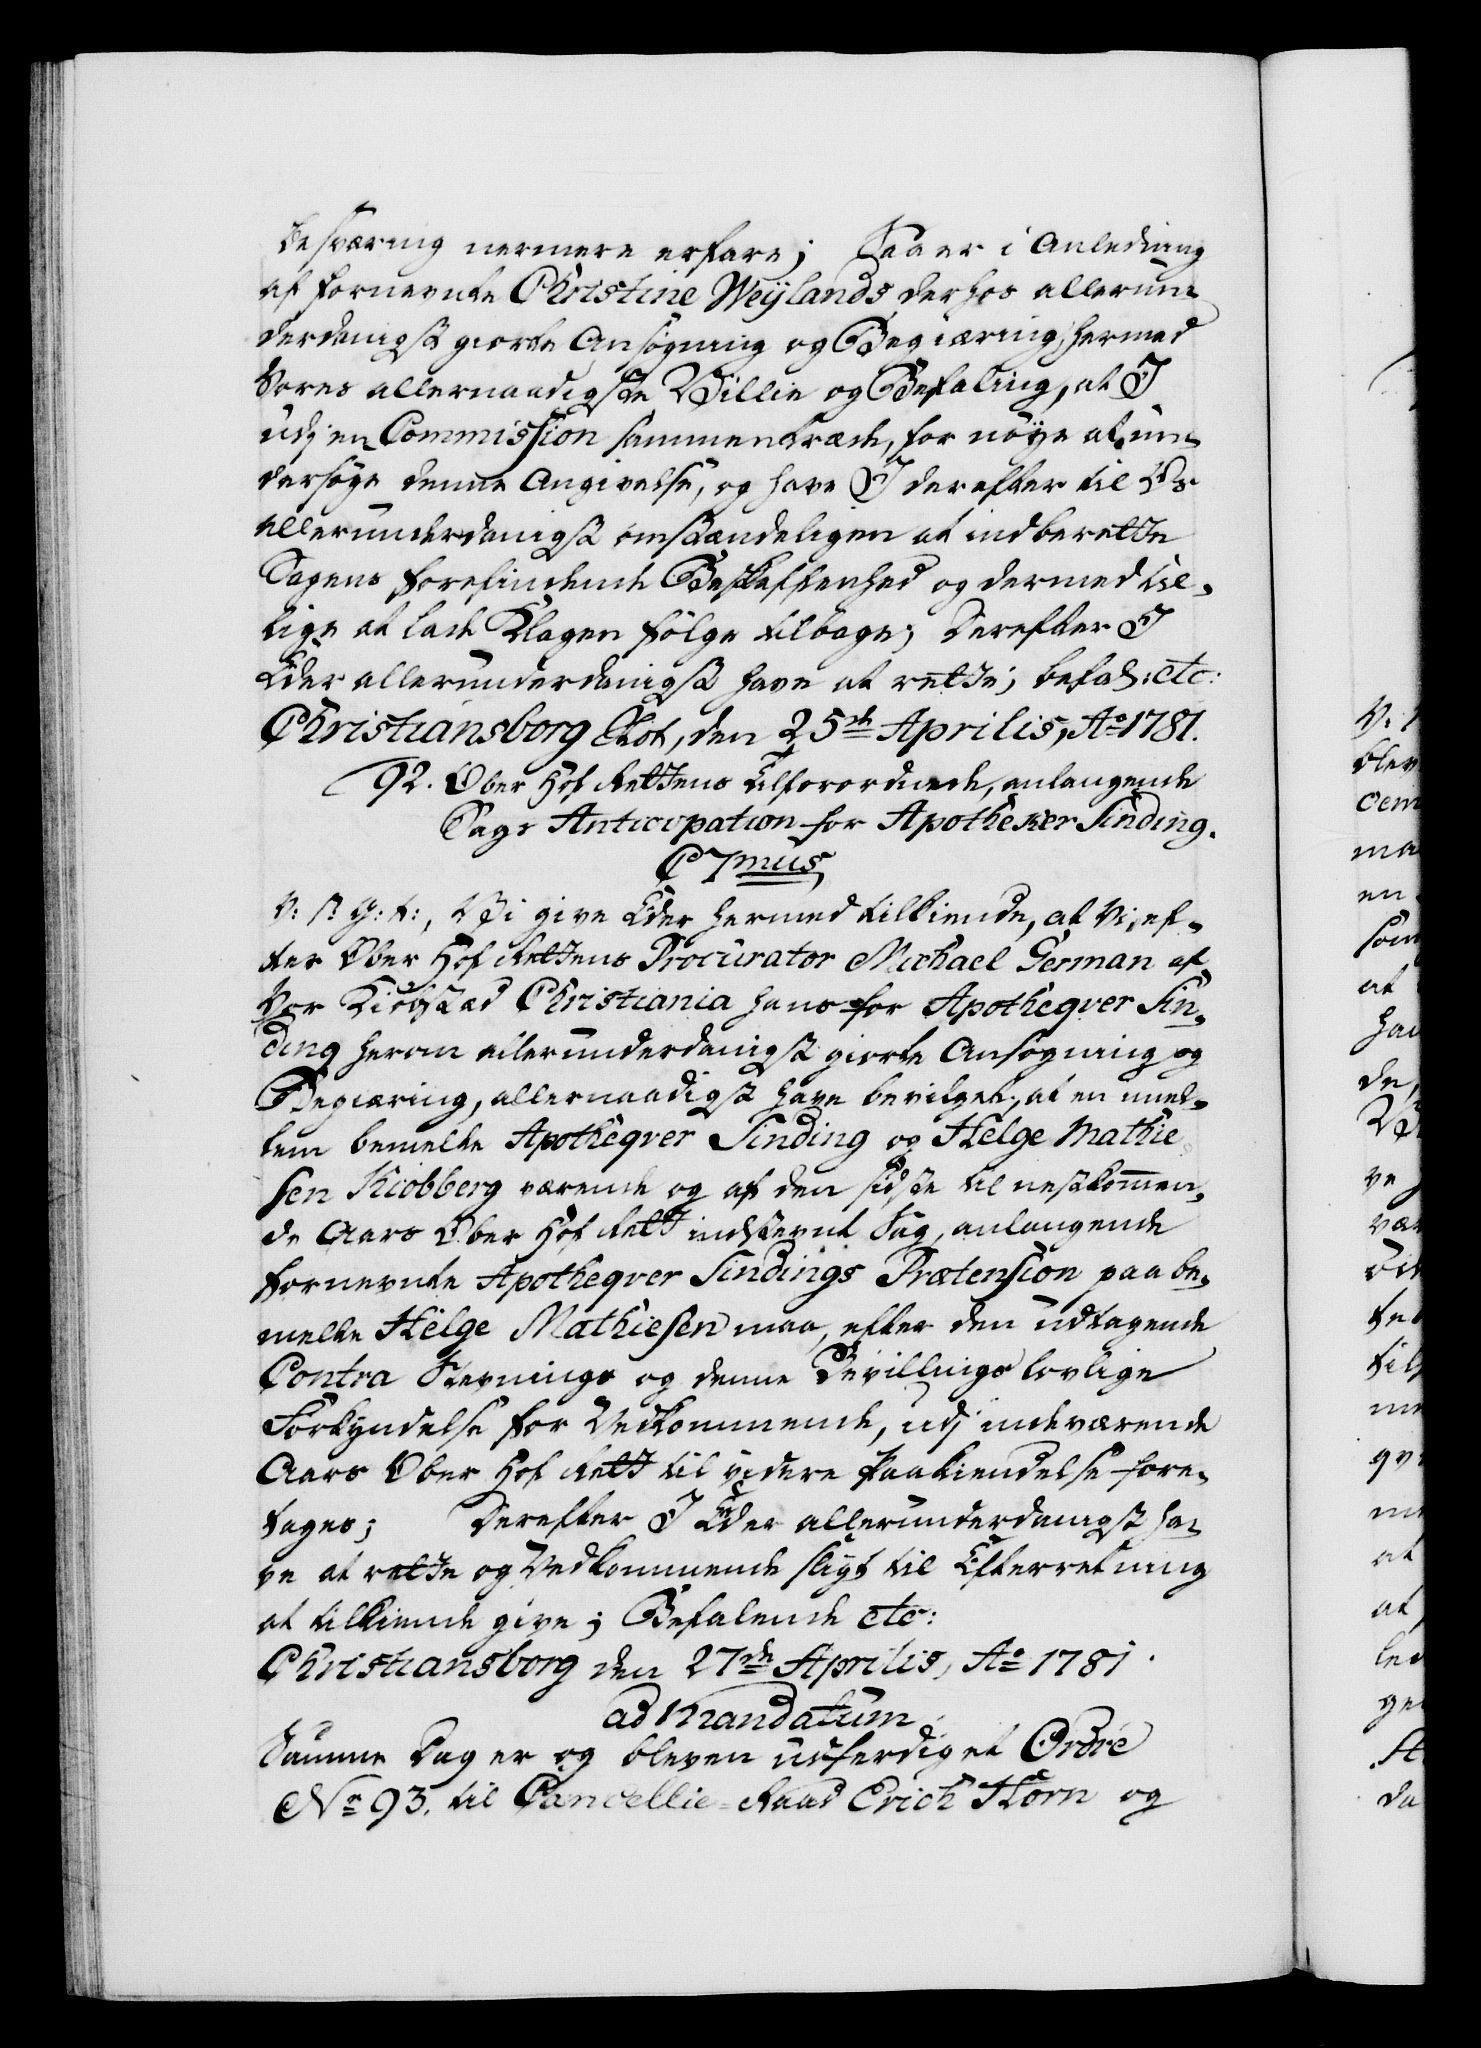 besværing nermere erfare; Saa er i Anledning
af fornevnte Christine Weylands derhos allerun-
derdanigst giorte Ansøgning og Begiæring, hermed
Vores allernaadigste Willie og Befaling, at I
udj en Commission sammentræde, for nøye at un-
dersøge denne Angivelse, og have I derefter til Os
allerunderdanigst omstændeligen at indberette
Sagens forefindende Beskaffenhed og dermed til-
lige at lade Klagen følge tilbage; Derefter I
Eder allerunderdanigst have at rette; befal: etc:
Christiansborg Slot, den 25de Aprilis, Ao 1781.
92. Ober Hof Rettens Tilforordnede, anlangende
Sags Anticipation for Apotheker Sinding.
C 7mus
V: S: G: T:, Wi give Eder hermed tilkiende, at Vi, ef-
ter Ober Hof Rettens Procurator Michael German af
Vor Kiøbstad Christiania hans for Apotheqver Sin-
ding herom allerunderdanigst giorte Ansøgning og
Begiæring, allernaadigst have bevilget, at en mel-
lem bemelte Apotheqver Sinding og Helge Mathie
sen Kiobberg værende og af den sidste til nestkommen-
de Aars Ober Hof Rett indstevnt Sag, anlangende
fornevnte Apotheqver Sindings Prætension paa be-
melte Helge Mathiesen maa, efter den udtagende
Contra Stevnings og denne Bevillings lovlige
Forkyndelse for Vedkommende, udj indeværende
Aars Ober Hof Rett til videre Paakiendelse fore-
tages; Derefter I Eder allerunderdanigst ha-
ve at rette og Vedkommende sligt til Efterretning
at tilkiende give; Befalende etc:
Christiansborg den 27de Aprilis, Ao 1781.
ad Mandatum.
Samme Dag er og bleven udferdiget Ordre
No 93. til Cancellie-Raad Erich Korn og